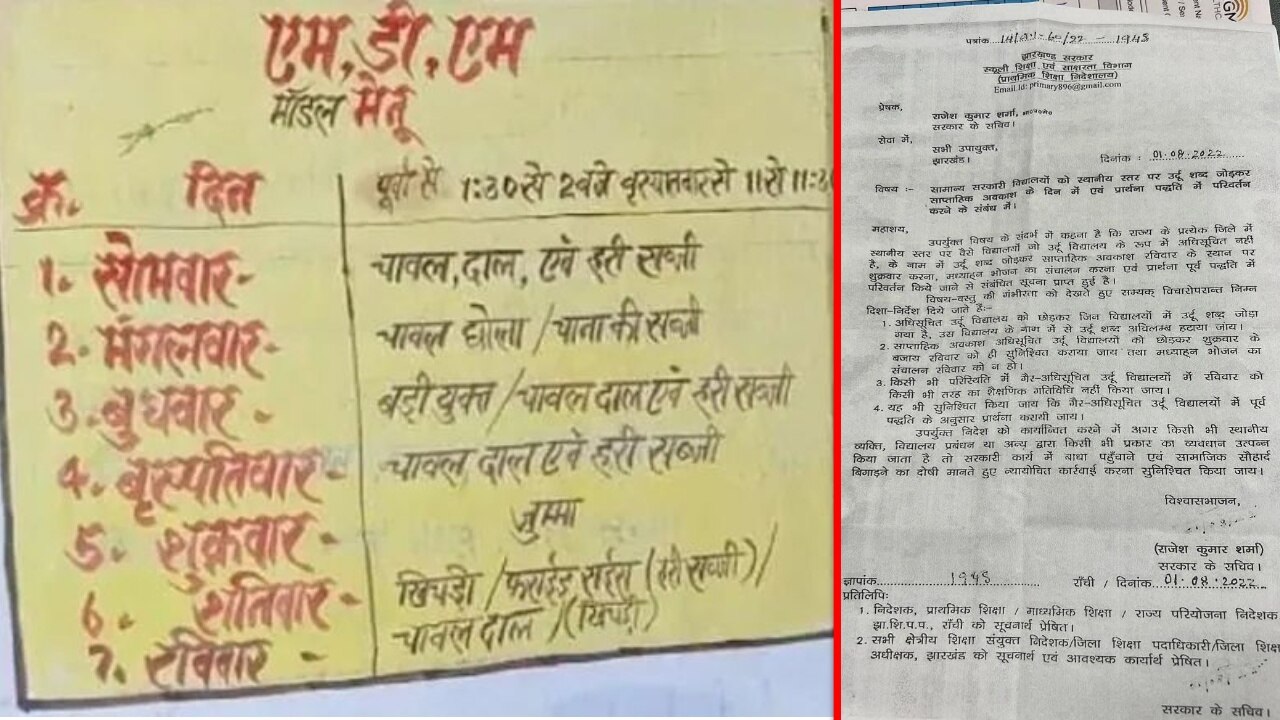 एम.डी.एम
मॉडल मेनू
क्र. दिन
पूर्वा से 1:30 से 2 बजे बृस्पतवार से 11 से 11:30
1. सोमवार- चावल, दाल, एवं हरी सब्जी
2. मंगलवार- चावल छोला / चाना की सब्जी
3. बुधवार - बड़ी युक्त / चावल दाल एवं हरी सब्जी
4. बृस्पतिवार- चावल दाल एवं हरी सब्जी
5. शुक्रवार - जुम्मा
6. शनिवार- खिचड़ी / फ्राईड राईस (हरी सब्जी) /
7. रविवार - चावल दाल / (खिचड़ी)
पत्रांक 1945
झारखण्ड सरकार
स्कूली शिक्षा एवं साक्षरता विभाग
(प्राथमिक शिक्षा निदेशालय)
Email Id: primary896@gmail.com
प्रेषक,
राजेश कुमार शर्मा, भा०प्र०से०
सरकार के सचिव।
सेवा में,
सभी उपायुक्त,
झारखंड।
दिनांक : 01.08.2022
विषय :- सामान्य सरकारी विद्यालयों को स्थानीय स्तर पर उर्दू शब्द जोड़कर
साप्ताहिक अवकाश के दिन में एवं प्रार्थना पद्धति में परिवर्तन
करने के संबंध में।
महाशय,
उपर्युक्त विषय के संदर्भ में कहना है कि राज्य के प्रत्येक जिले में
स्थानीय स्तर पर वैसे विद्यालयों जो उर्दू विद्यालय के रूप में अधिसूचित नहीं
है, के नाम में उर्दू शब्द जोड़कर साप्ताहिक अवकाश रविवार के स्थान पर
शुक्रवार करना, मध्याह्न भोजन का संचालन करना एवं प्रार्थना पूर्व पद्धति में
परिवर्तन किये जाने से संबंधित सूचना प्राप्त हुई है।
विषय-वस्तु की गंभीरता को देखते हुए सम्यक् विचारोपरान्त निम्न
दिशा-निर्देश दिये जाते है:-
1. अधिसूचित उर्दू विद्यालय को छोड़कर जिन विद्यालयों में उर्दू शब्द जोड़ा
गया है, उस विद्यालय के नाम में से उर्दू शब्द अविलम्ब हटाया जाय।
2. साप्ताहिक अवकाश अधिसूचित उर्दू विद्यालयों को छोड़कर शुक्रवार के
बजाय रविवार को ही सुनिश्चित कराया जाय तथा मध्याह्न भोजन का
संचालन रविवार को न हो।
3. किसी भी परिस्थिति में गैर-अधिसूचित उर्दू विद्यालयों में रविवार को
किसी भी तरह का शैक्षणिक गतिविधि नहीं किया जाय।
4. यह भी सुनिश्चित किया जाय कि गैर-अधिसूचित उर्दू विद्यालयों में पूर्व
पद्धति के अनुसार प्रार्थना करायी जाय।
उपर्युक्त निदेश को कार्यान्वित करने में अगर किसी भी स्थानीय
व्यक्ति, विद्यालय प्रबंधन या अन्य द्वारा किसी भी प्रकार का व्यवधान उत्पन्न
किया जाता है तो सरकारी कार्य में बाधा पहुँचाने एवं सामाजिक सौहार्द
बिगाड़ने का दोषी मानते हुए न्यायोचित कार्रवाई करना सुनिश्चित किया जाय।
विश्वासभाजन,
(राजेश कुमार शर्मा)
सरकार के सचिव।
ज्ञापांक 1945 राँची / दिनांक 01.08.2022
प्रतिलिपिः
1. निदेशक, प्राथमिक शिक्षा / माध्यमिक शिक्षा / राज्य परियोजना निदेशक
झा.शि.प.प., राँची को सूचनार्थ प्रेषित।
2. सभी क्षेत्रीय शिक्षा संयुक्त निदेशक/जिला शिक्षा पदाधिकारी/जिला शिक्षा
अधीक्षक, झारखंड को सूचनार्थ एवं आवश्यक कार्यार्थ प्रेषित।
सरकार के सचिव।